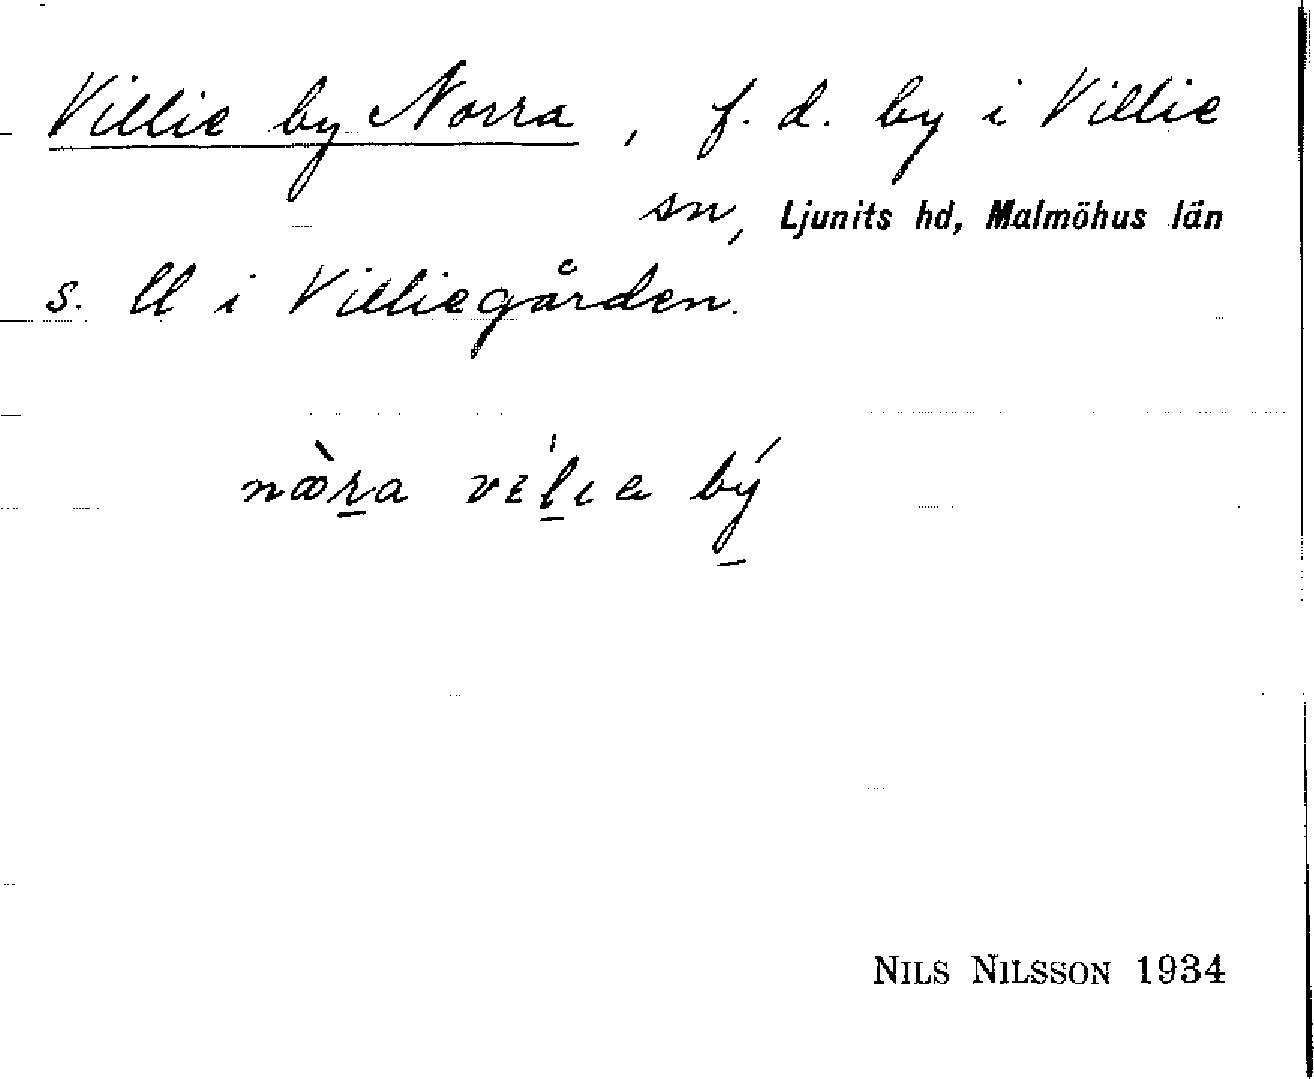 Villie by Norra, f. d. by i Villie
sn, Ljunits hd, Malmöhus län
s. ll i Villiegården.
NILS NILSSON 1934